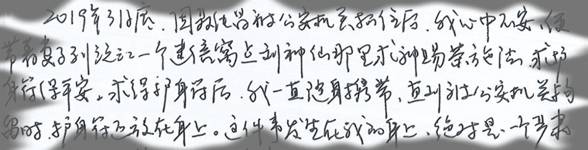 2019年3月底,因
被公安机关抓住后,我心中不安,便
带着妻子到
一个
窝点到神仙那里求神赐茶施法,求护
身符保平安。求得护身符后,我一直随身携带,直到被公安机关拘
留时,护身符还放在身上。这件事发生在我的身上,绝对是一个